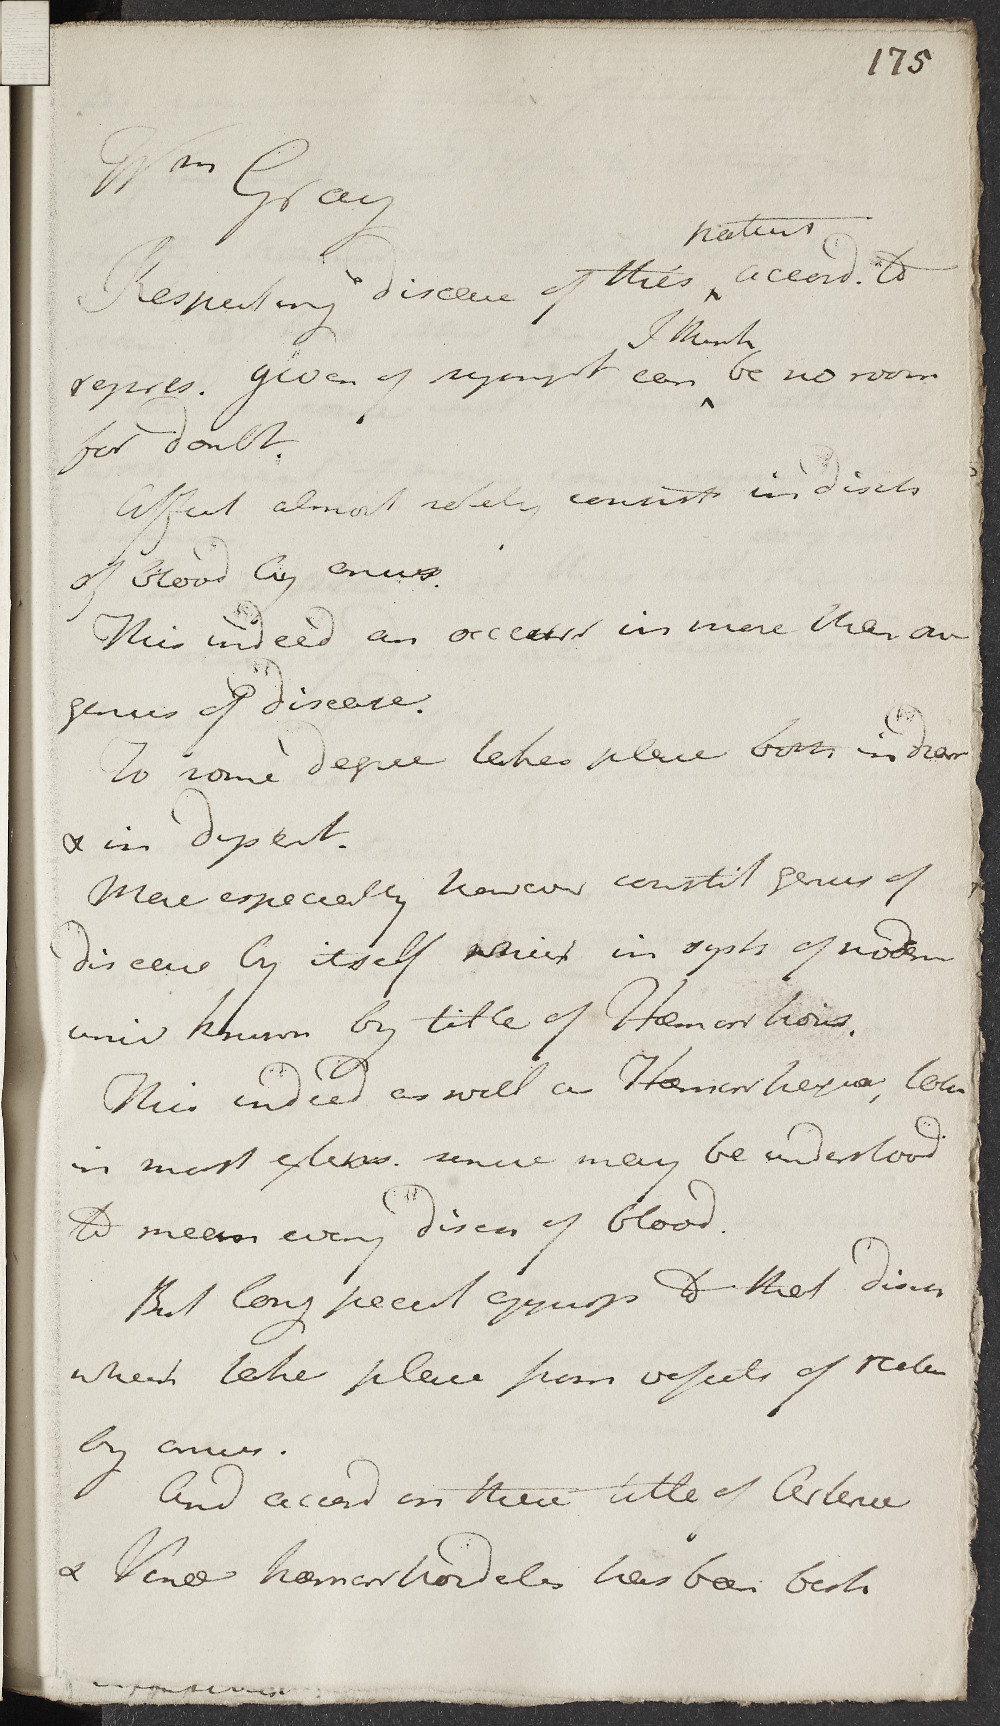 175
Wm Gray
Respecting disease of this ^ patient accord. to
repres. given of sympt can ^ I think be no room
for doubt.
Affect almost solely consists in disch
of blood by anus.
This indeed an occurr in more than on
genus of disease.
To some degree takes place both in diarr
& in dysent.
More especially however constit genus of
disease by itself which in systs of modern
univ known by title of Hæmorrhois.
This indeed as well as Hæmorrhagia, taken
in most extens. sense may be understood
to mean every disch of blood.
But long pecul approp to that disch
which take place from vessels of rectum
by anus.
And accord on these title of Arteriæ
& Venæ hæmorrhoidales has been best